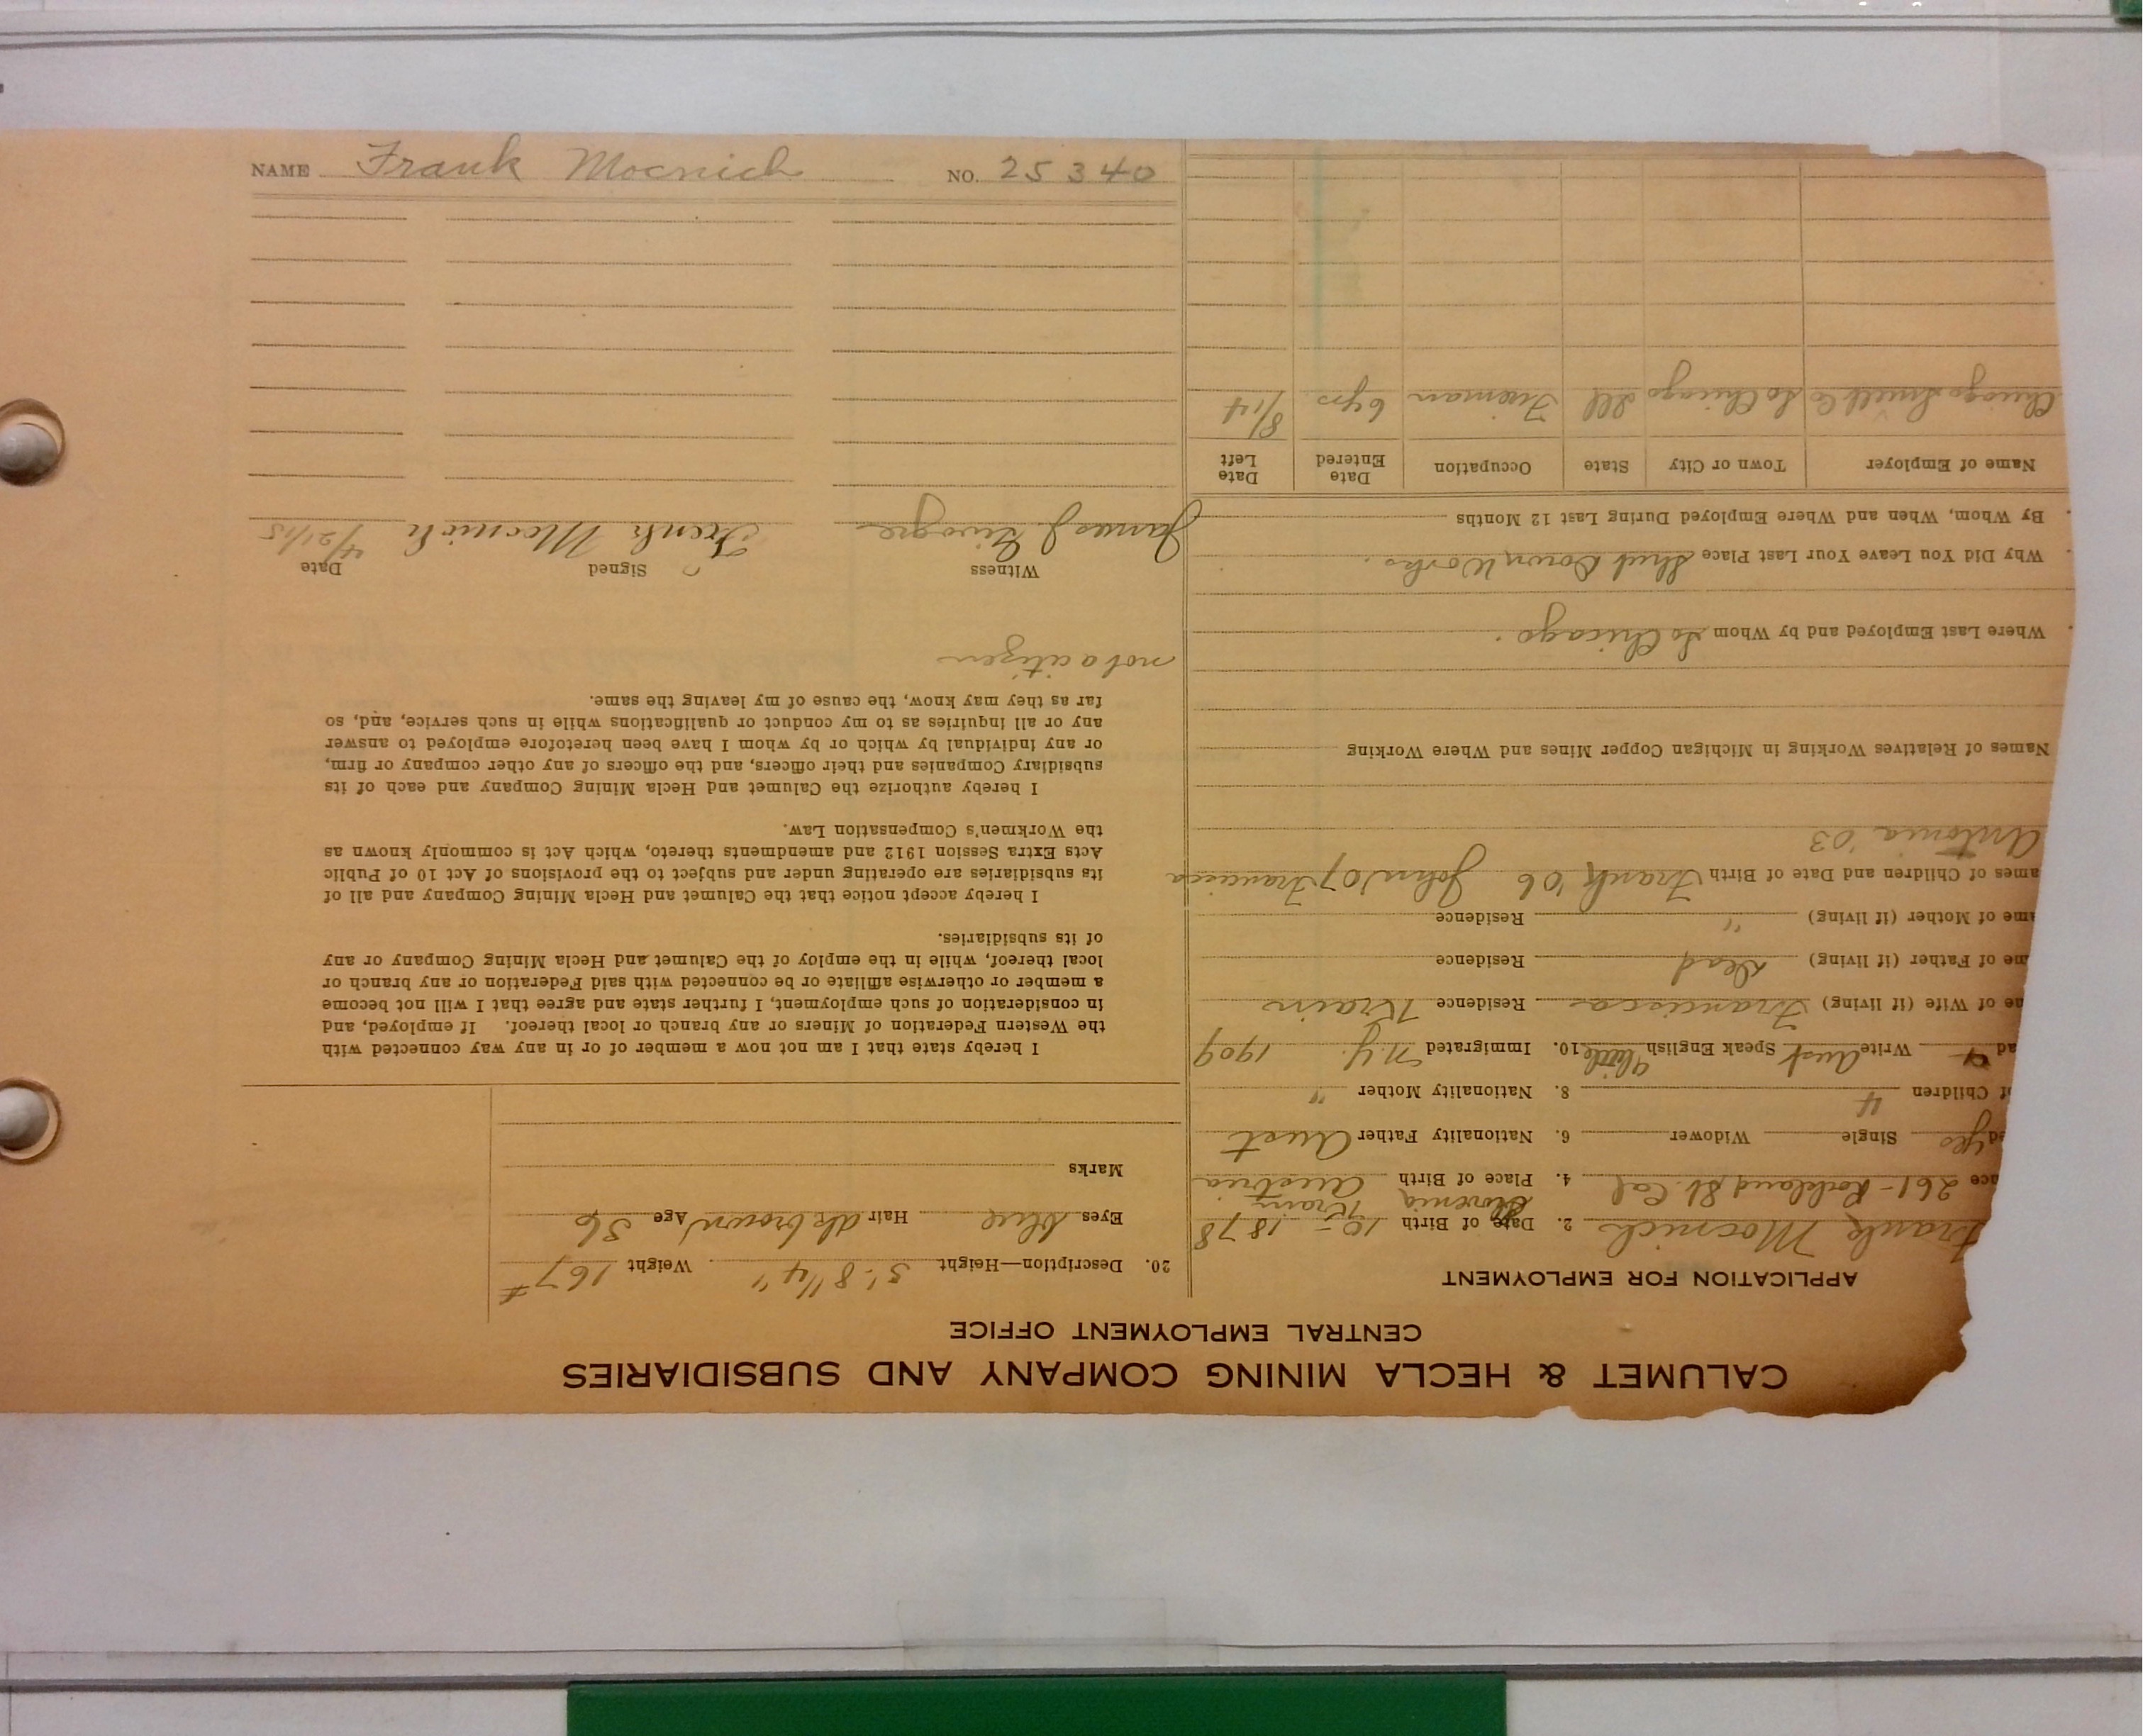 CALUMET & HECLA MINING COMPANY AND SUBSIDIARIES
CENTRAL EMPLOYMENT OFFICE
APPLICATION FOR EMPLOYMENT
Frank Mocnich 2. Date of Birth 10- 1878
ace 261- Rockland St. Cal 4. Place of Birth Slovenia Krain Austria
ed yes Single Widower 6. Nationality Father Aust
of Children 4 8. Nationality Mother "
ad Write Aust Speak English little 10. Immigrated N.Y. 1909
me of Wife (if living) Francisca Residence Krain
me of Father (if living) Dead Residence
me of Mother (if living) " Residence
ames of Children and Date of Birth Frank '06 John '07 Francisca
Antonia '03
Names of Relatives Working in Michigan Copper Mines and Where Working
Where Last Employed and by Whom So Chicago.
Why Did You Leave Your Last Place Shut Down Works.
By Whom, When and Where Employed During Last 12 Months
Name of Employer Town or City State Occupation Date Entered Date Left
Chicago Smelt Co So Chicago Ill Fireman 6 yrs 8/14
20. Description—Height 5'. 8 1/4" Weight 167#
Eyes blue Hair dk brown Age 36
Marks
I hereby state that I am not now a member of or in any way connected with
the Western Federation of Miners or any branch or local thereof. If employed, and
in consideration of such employment, I further state and agree that I will not become
a member or otherwise affiliate or be connected with said Federation or any branch or
local thereof, while in the employ of the Calumet and Hecla Mining Company or any
of its subsidiaries.
I hereby accept notice that the Calumet and Hecla Mining Company and all of
its subsidiaries are operating under and subject to the provisions of Act 10 of Public
Acts Extra Session 1912 and amendments thereto, which Act is commonly known as
the Workmen's Compensation Law.
I hereby authorize the Calumet and Hecla Mining Company and each of its
subsidiary Companies and their officers, and the officers of any other company or firm,
or any individual by which or by whom I have been heretofore employed to answer
any or all inquiries as to my conduct or qualifications while in such service, and, so
far as they may know, the cause of my leaving the same.
not a citizen
Witness Signed Date
James J Frenk Mocnich 4/21/15
NAME Frank Mocnich NO. 25340